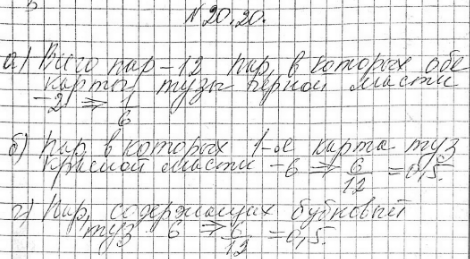 № 20.20.
а) Всего пар – 12 пар, в которых обе
карты тузы чёрной масти
– 2 ⇒ 1/6
б) Пар в которых 1-я карта туз
красной масти – 6 ⇒ 6/12 = 0,5.
г) Пар, содержащих бубновый
туз 6 ⇒ 6/12 = 0,5.